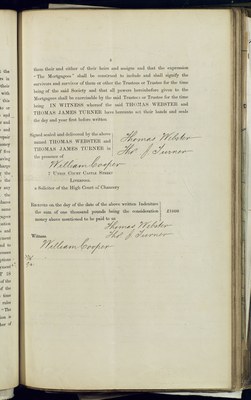 4
them their and either of their heirs and assigns and that the expression
"The Mortgagees" shall be construed to include and shall signify the
survivors and survivor of them or other the Trustees or Trustee for the time
being of the said Society and that all powers hereinbefore given to the
Mortgagees shall be exerciseable by the said Trustees or Trustee for the time
being. IN WITNESS whereof the said THOMAS WEBSTER and
THOMAS JAMES TURNER have hereunto set their hands and seals
the day and year first before written.
Signed sealed and delivered by the above
named THOMAS WEBSTER and
THOMAS JAMES TURNER in
the presence of
Thomas Webster
Thos. J. Turner
William Cooper
Union Court Castle Street
LIVERPOOL
a Solicitor of the High Court of Chancery
RECEIVED on the day of the date of the above written Indenture
the sum of one thousand pounds being the consideration
money above mentioned to be paid to us
£1000
Thomas Webster
Thos. J. Turner
Witness
William Cooper